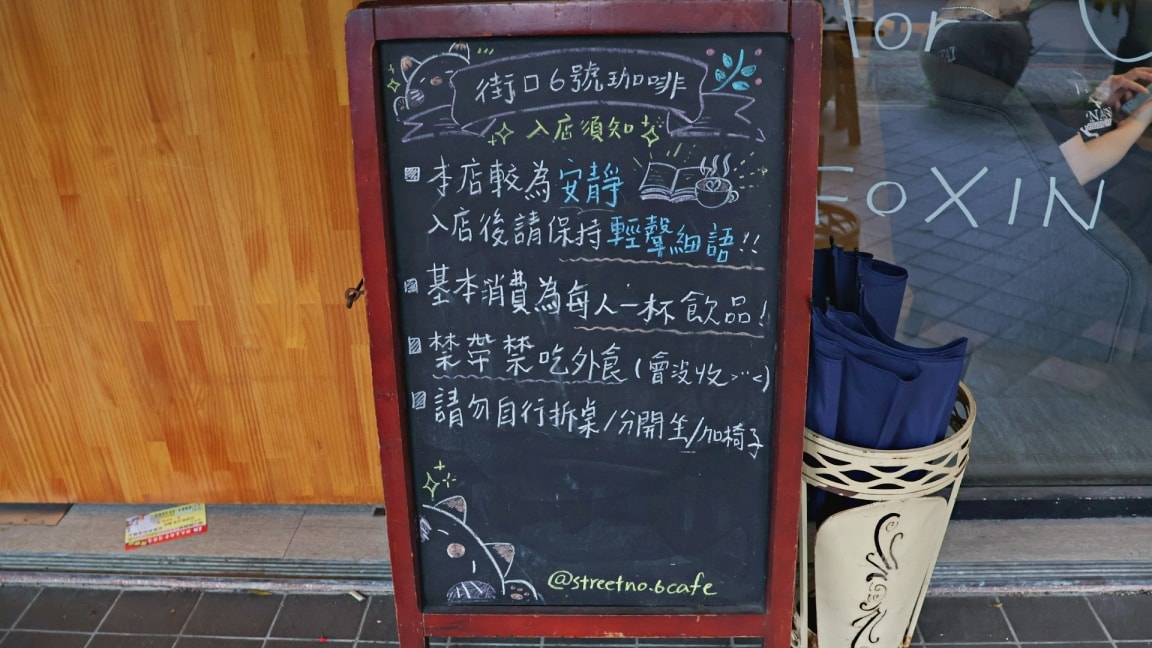 街口6號珈啡
入店須知
本店較為安靜
入店後請保持輕聲細語!!
基本消費為每人一杯飲品!
禁帶禁吃外食(會沒收>"<)
請勿自行拆桌/分開坐/加椅子
@streetno.6cafe
for
FOXIN